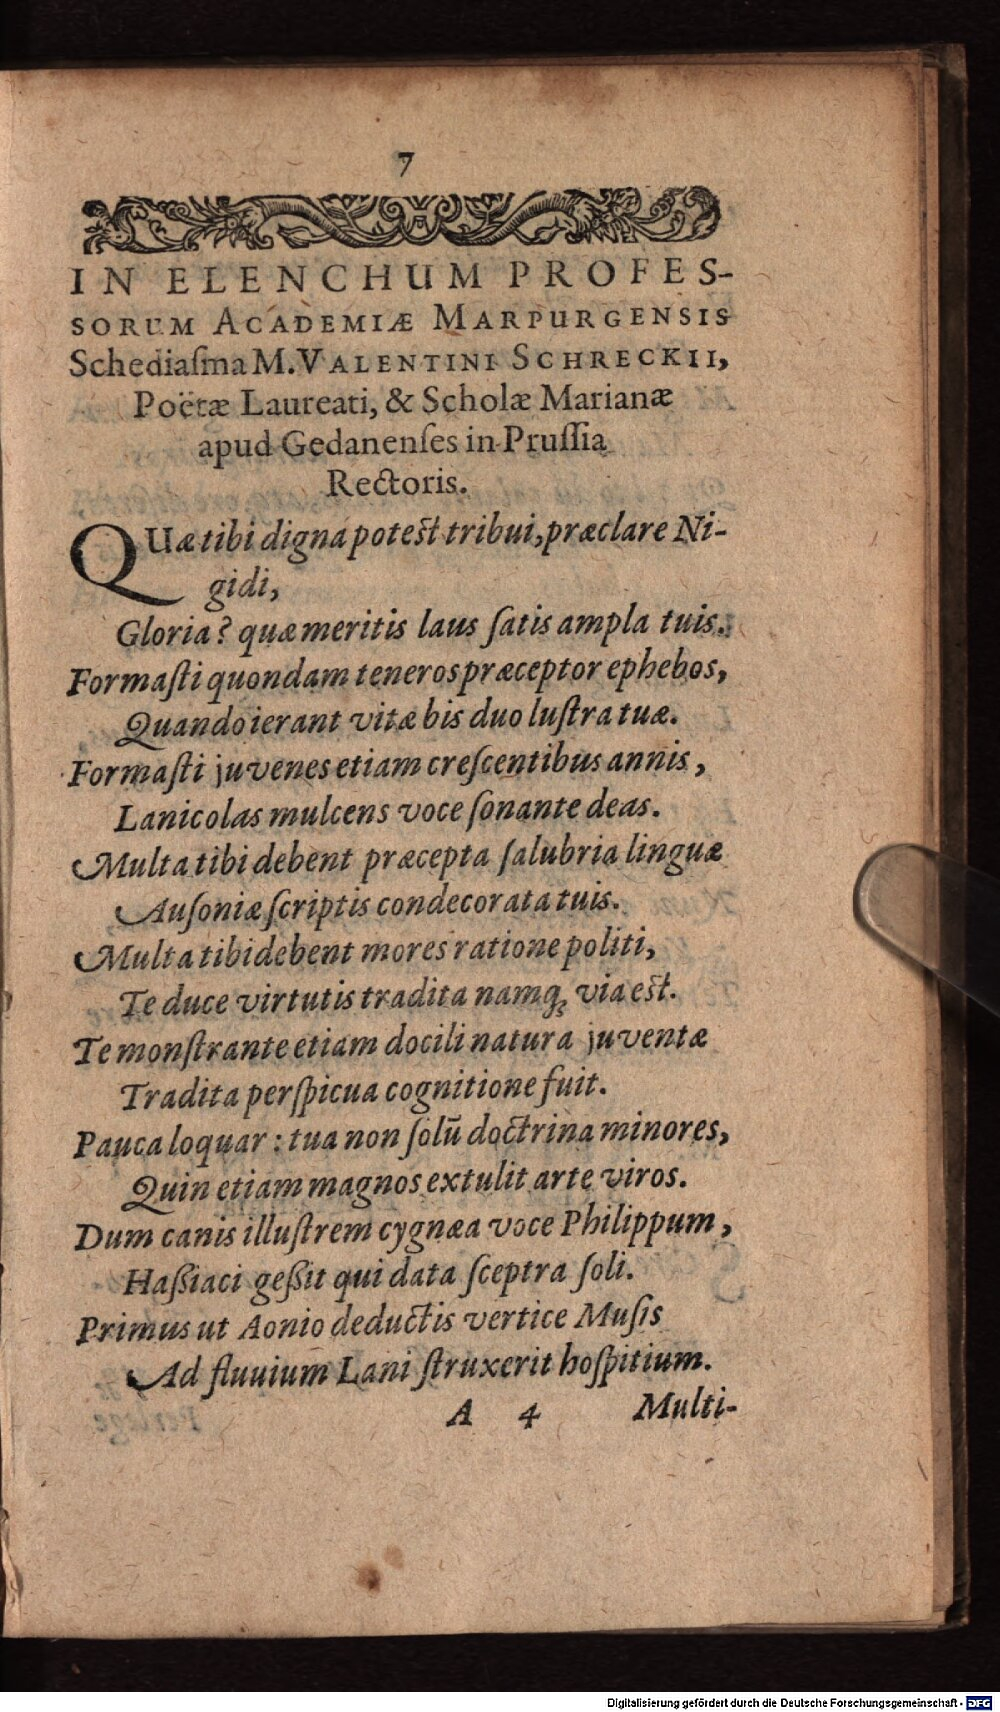 7
IN ELENCHUM PROFES-
SORUM ACADEMIÆ MARPURGENSIS
Schediaſma M. VALENTINI SCHRECKII,
Poëtæ Laureati, & Scholæ Marianæ
apud Gedanenſes in Pruſſia
Rectoris.
QUæ tibi digna potest tribui, præclare Ni-
gidi,
Gloria? quæ meritis laus ſatis ampla tuis.
Formaſti quondam teneros præceptor ephebos,
Quando ierant vitæ bis duo luſtra tuæ.
Formaſti juvenes etiam creſcentibus annis,
Lanicolas mulcens voce ſonante deas.
Multa tibi debent præcepta ſalubria linguæ
Auſoniæ ſcriptis condecorata tuis.
Multa tibi debent mores ratione politi,
Te duce virtutis tradita namq; via est.
Te monſtrante etiam docili natura juventæ
Tradita perſpicua cognitione fuit.
Pauca loquar: tua non ſolũ doctrina minores,
Quin etiam magnos extulit arte viros.
Dum canis illuſtrem cygnæa voce Philippum,
Haßiaci geßit qui data ſceptra ſoli.
Primus ut Aonio deductis vertice Muſis
Ad fluuium Lani ſtruxerit hoſpitium.
A 4 Multi-
Digitalisierung gefördert durch die Deutsche Forschungsgemeinschaft - DFG